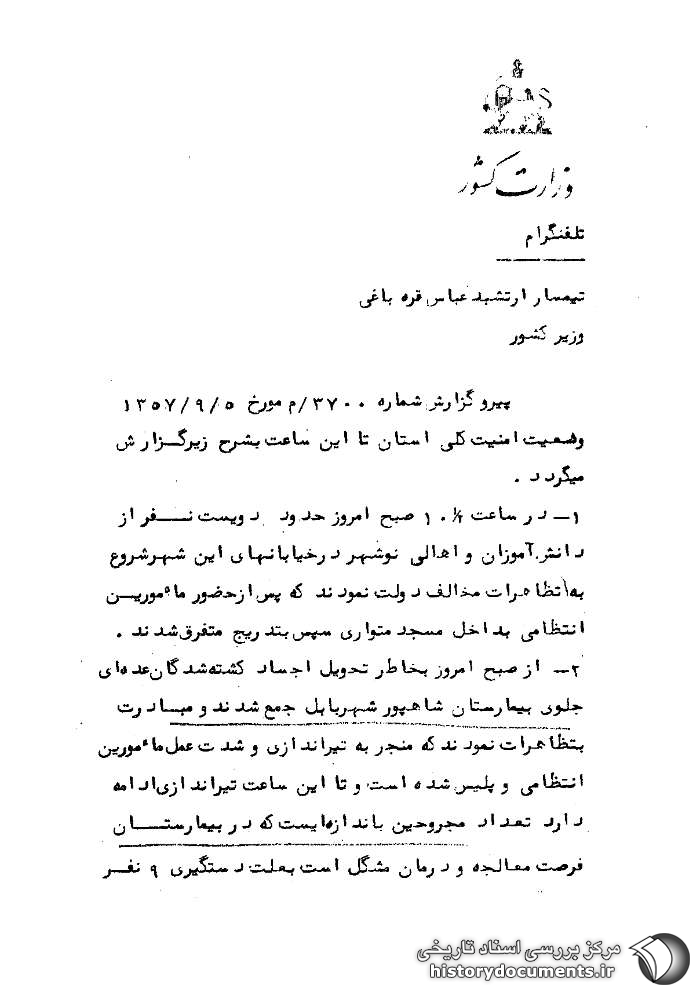 وزارت کشور
تلفنگرام
تیمسار ارتشبد عباس قره باغی
وزیر کشور
پیرو گزارش شماره ۳۷۰۰/م مورخ ۱۳۵۷/۹/۵
وضعیت امنیت کلی استان تا این ساعت بشرح زیر گزارش
میگردد .
۱ــ در ساعت ۱۰/۴ صبح امروز حدود دویست نفر از
دانش آموزان و اهالی نوشهر درخیابانهای این شهر شروع
به تظاهرات مخالف دولت نمودند که پس از حضور مأمورین
انتظامی بداخل مسجد متواری سپس بتدریج متفرق شدند .
۲ــ از صبح امروز بخاطر تحویل اجساد کشته شدگان عده ای
جلوی بیمارستان شاهپور شهر بابل جمع شدند و مبادرت
بتظاهرات نمودند که منجر به تیراندازی و شدت عمل مأمورین
انتظامی و پلیس شده است و تا این ساعت تیراندازی ادامه
دارد تعداد مجروحین باندازه ایست که در بیمارستان
فرصت معالجه و درمان مشگل است بعلت دستگیری ۹ نفر
مرکز بررسی اسناد تاریخی
historydocuments.ir